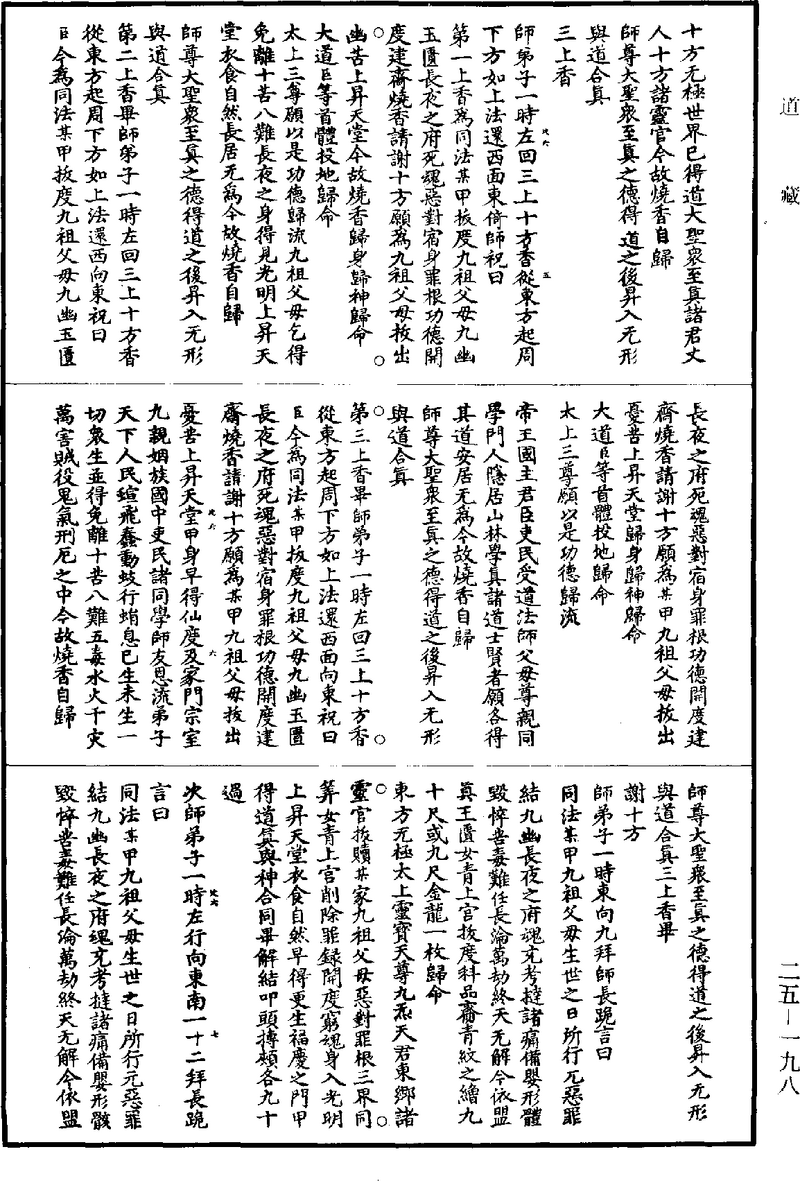 道藏
十方无極世界已得道大聖衆至真諸君丈
人十方諸靈官今故燒香自歸
師尊大聖衆至真之德得道之後昇入无形
與道合真
三上香
師弟子一時左回三上十方香從東方起周
下方如上法還西面東倚師祝曰
第一上香爲同法某甲拔度九祖父母九幽
玉匱長夜之府死魂惡對宿身罪根功德開
度建齋燒香請謝十方願爲九祖父母拔出
幽苦上昇天堂今故燒香歸身歸神歸命
大道臣等首體投地歸命
太上三尊願以是功德歸流九祖父母乞得
免離十苦八難長夜之身得見光明上昇天
堂衣食自然長居无爲今故燒香自歸
師尊大聖衆至真之德得道之後昇入无形
與道合真
第二上香畢師弟子一時左回三上十方香
從東方起周下方如上法還西向東祝曰
臣今爲同法某甲拔度九祖父母九幽玉匱
長夜之府死魂惡對宿身罪根功德開度建
齋燒香請謝十方願爲某甲九祖父母拔出
憂苦上昇天堂歸身歸神歸命
大道臣等首體投地歸命
太上三尊願以是功德歸流
帝王國主君臣吏民受道法師父母尊親同
學門人隱居山林學真諸道士賢者願各得
其道安居无爲今故燒香自歸
師尊大聖衆至真之德得道之後昇入无形
與道合真
第三上香畢師弟子一時左回三上十方香
從東方起周下方如上法還西面向東祝曰
臣今爲同法某甲拔度九祖父母九幽玉匱
長夜之府死魂惡對宿身罪根功德開度建
齋燒香請謝十方願爲某甲九祖父母拔出
憂苦上昇天堂甲身早得仙度及家門宗室
九親姻族國中吏民諸同學師友恩流弟子
天下人民蝖飛蠢動蚑行蜎息已生未生一
切衆生並得免離十苦八難五毒水火千灾
萬害賊役鬼氣刑厄之中今故燒香自歸
師尊大聖衆至真之德得道之後昇入无形
與道合真三上香畢
謝十方
師弟子一時東向九拜師長跪言曰
同法某甲九祖父母生世之日所行元惡罪
結九幽長夜之府魂充考撻諸痛備嬰形體
毀悴苦毒難任長淪萬劫終天无解今依盟
真玉匱女青上宫拔度科品齎青紋之繒九
十尺或九尺金龍一枚歸命
東方无極太上靈寶天尊九炁天君東鄉諸
靈官拔贖某家九祖父母惡對罪根三界同
筭女青上宫削除罪録開度窮魂身入光明
上昇天堂衣食自然早得更生福慶之門甲
得道真與神合同畢解結叩頭搏頰各九十
過
次師弟子一時左行向東南一十二拜長跪
言曰
同法某甲九祖父母生世之日所行元惡罪
結九幽長夜之府魂充考撻諸痛備嬰形骸
毀悴苦毒難任長淪萬劫終天无解今依盟
二五－一九八